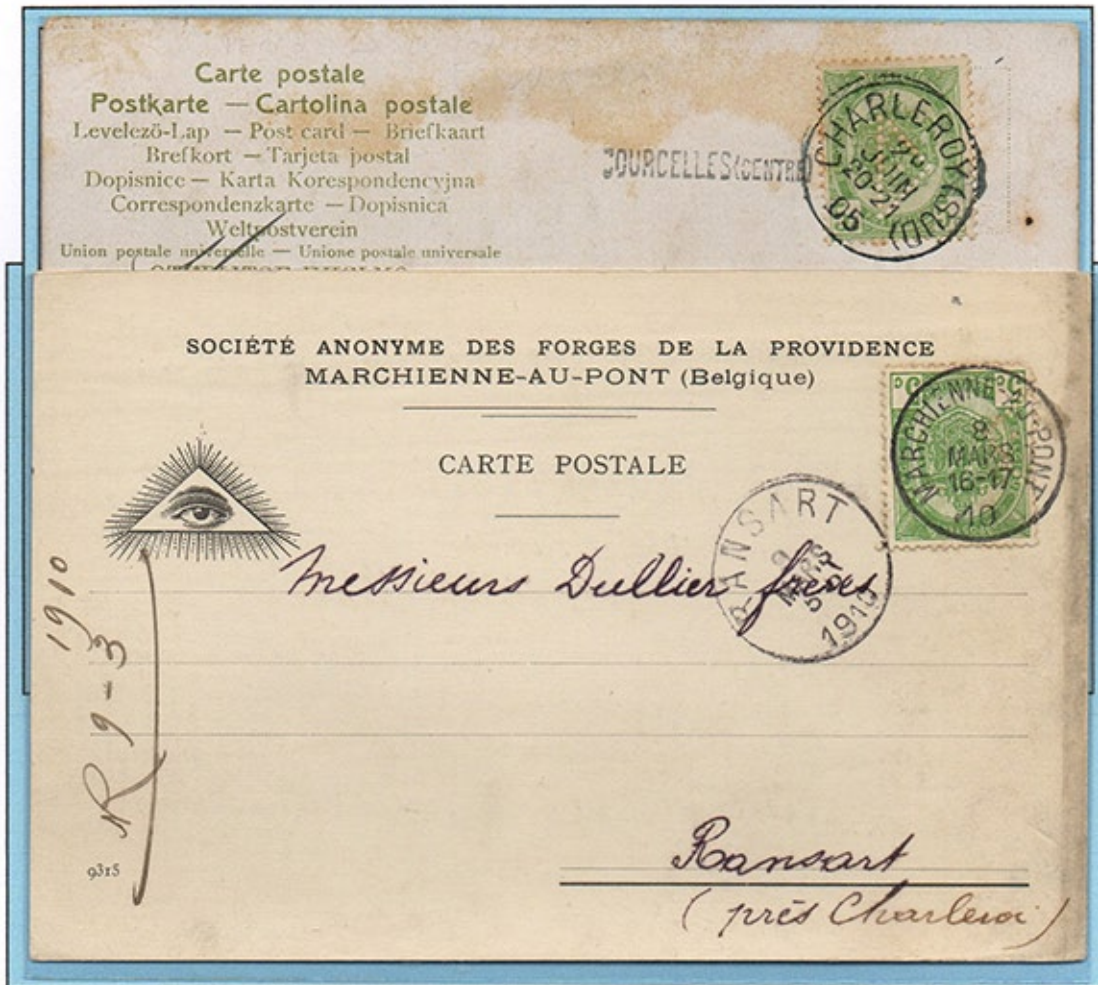 Carte postale
Postkarte — Cartolina postale
Levelezö-Lap — Post card — Briefkaart
Brefkort — Tarjeta postal
Dopisnice — Karta Korespondencyjna
Correspondenzkarte — Dopisnica
Weltpostverein
Union postale universelle — Unione postale universale
COURCELLES (CENTRE)
CHARLEROY (SUD)
JUIN
20-21
05
SOCIÉTÉ ANONYME DES FORGES DE LA PROVIDENCE
MARCHIENNE-AU-PONT (Belgique)
CARTE POSTALE
5c 5c
MARCHIENNE-AU-PONT
8
MARS
16-17
10
RANSART
9
MARS
1910
Messieurs Dullier frères
1910
R 9-3
Ransart
(près Charleroi)
9315